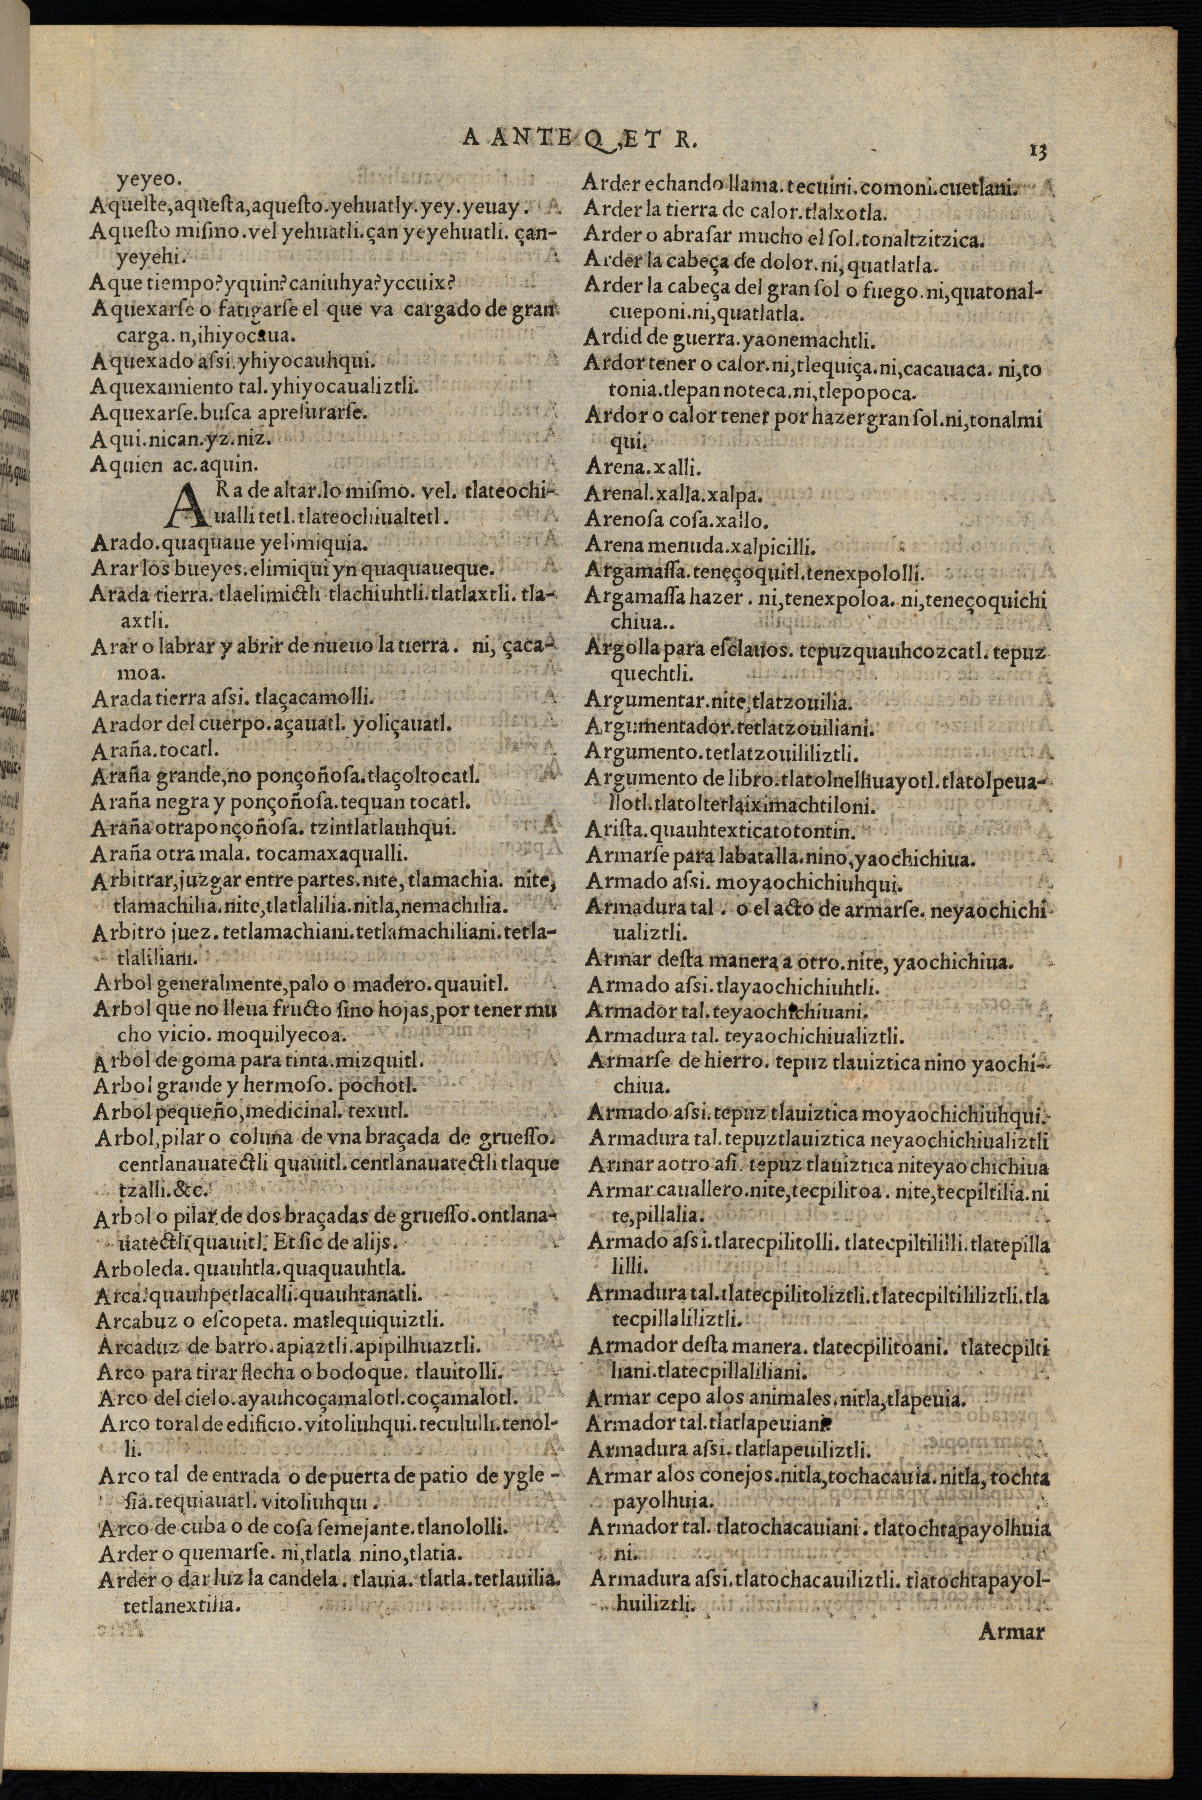 A ANTE Q, ET R.
13
yeyeo.
Aqueste,aquesta,aquesto.yehuatly.yey.yeuay.
Aquesto misino.vel yehuatli.çan yeyehuatli. çan-
yeyehi.
Aque tiempo?yquin?caniuhya?yccuix?
Aquexarse o fatigarse el que va cargado de gran
carga. n,ihiyocaua.
Aquexado assi.yhiyocauhqui.
Aquexamiento tal. yhiyocaualiztli.
Aquexarse.busca apresurarse.
Aqui.nican.yz.niz.
Aquien ac.aquin.
ARa de altar.lo mismo. vel. tlateochi-
ualli tetl.tlateochiualtetl.
Arado.quaquaue yelimiquia.
Arar los bueyes.elimiqui yn quaquaueque.
Arada tierra. tlaelimictli tlachiuhtli.tlatlaxtli. tla-
axtli.
Arar o labrar y abrir de nueuo la tierra. ni, çaca-
moa.
Arada tierra assi. tlaçacamolli.
Arador del cuerpo.açauatl. yoliçauatl.
Araña.tocatl.
Araña grande,no ponçoñosa.tlaçoltocatl.
Araña negra y ponçoñosa.tequan tocatl.
Araña otraponçoñosa. tzintlatlauhqui.
Araña otra mala. tocamaxaqualli.
Arbitrar,juzgar entre partes.nite, tlamachia. nite,
tlamachilia.nite,tlatlalilia.nitla,nemachilia.
Arbitro juez. tetlamachiani.tetlamachiliani.tetla-
tlaliliani.
Arbol generalmente,palo o madero.quauitl.
Arbol que no lleua fructo sino hojas,por tener mu
cho vicio. moquilyecoa.
Arbol de goma para tinta.mizquitl.
Arbol grande y hermoso. pochotl.
Arbol pequeño,medicinal. texutl.
Arbol,pilar o coluna de vna braçada de gruesso.
centlanauatectli quauitl.centlanauatectli tlaque
tzalli.&c.
Arbol o pilar de dos braçadas de gruesso.ontlana-
uatectli quauitl. Et sic de alijs.
Arboleda. quauhtla.quaquauhtla.
Arca.quauhpetlacalli.quauhtanatli.
Arcabuz o escopeta. matlequiquiztli.
Arcaduz de barro.apiaztli.apipilhuaztli.
Arco para tirar flecha o bodoque. tlauitolli.
Arco del cielo.ayauhcoçamalotl.coçamalotl.
Arco toral de edificio.vitoliuhqui.tecululli.tenol-
li.
Arco tal de entrada o de puerta de patio de ygle-
sia.tequiauatl.vitoliuhqui.
Arco de cuba o de cosa semejante.tlanololli.
Arder o quemarse. ni,tlatla nino,tlatia.
Arder o dar luz la candela. tlauia. tlatla.tetlauilia.
tetlanextilia.
Arder echando llama.tecuini.comoni.cuetlani.
Arder la tierra de calor.tlalxotla.
Arder o abrasar mucho el sol.tonaltzitzica.
Arder la cabeça de dolor.ni,quatlatla.
Arder la cabeça del gran sol o fuego.ni,quatonal-
cueponi.ni,quatlatla.
Ardid de guerra.yaonemachtli.
Ardor tener o calor.ni,tlequiça.ni,cacauaca. ni,to
tonia.tlepan noteca.ni,tlepopoca.
Ardor o calor tener por hazer gran sol.ni,tonalmi
qui.
Arena.xalli.
Arenal.xalla.xalpa.
Arenosa cosa.xallo.
Arena menuda.xalpicilli.
Argamassa.teneçoquitl.tenexpololli.
Argamassa hazer. ni,tenexpoloa. ni,teneçoquichi
chiua..
Argolla para esclauos. tepuzquauhcozcatl. tepuz
quechtli.
Argumentar.nite,tlatzouilia.
Argumentador.tetlatzouiliani.
Argumento.tetlatzouililiztli.
Argumento de libro.tlatolnelhuayotl.tlatolpeua-
llotl.tlatoltetlaiximachtiloni.
Arista.quauhtexticatotontin.
Armarse para labatalla.nino,yaochichiua.
Armado assi. moyaochichiuhqui.
Armadura tal. o el acto de armarse. neyaochichi
ualiztli.
Armar desta manera a otro.nite, yaochichiua.
Armado assi.tlayaochichiuhtli.
Armador tal.teyaochichiuani.
Armadura tal. teyaochichiualiztli.
Armarse de hierro. tepuz tlauiztica nino yaochi-
chiua.
Armado assi.tepuz tlauiztica moyaochichiuhqui.
Armadura tal.tepuztlauiztica neyaochichiualiztli
Armar aotro asi. tepuz tlauiztica niteyaochichiua
Armar cauallero.nite,tecpilitoa. nite,tecpiltilia.ni
te,pillalia.
Armado assi.tlatecpilitolli. tlatecpiltililli.tlatepilla
lilli.
Armadura tal.tlatecpilitoliztli.tlatecpiltililiztli.tla
tecpillaliliztli.
Armador desta manera. tlatecpilitoani. tlatecpilti
liani.tlatecpillaliliani.
Armar cepo alos animales.nitla,tlapeuia.
Armador tal.tlatlapeuiani.
Armadura assi.tlatlapeuiliztli.
Armar alos conejos.nitla,tochacauia.nitla, tochta
payolhuia.
Armador tal. tlatochacauiani. tlatochtapayolhuia
ni.
Armadura assi.tlatochacauiliztli. tlatochtapayol-
huiliztli.
Armar